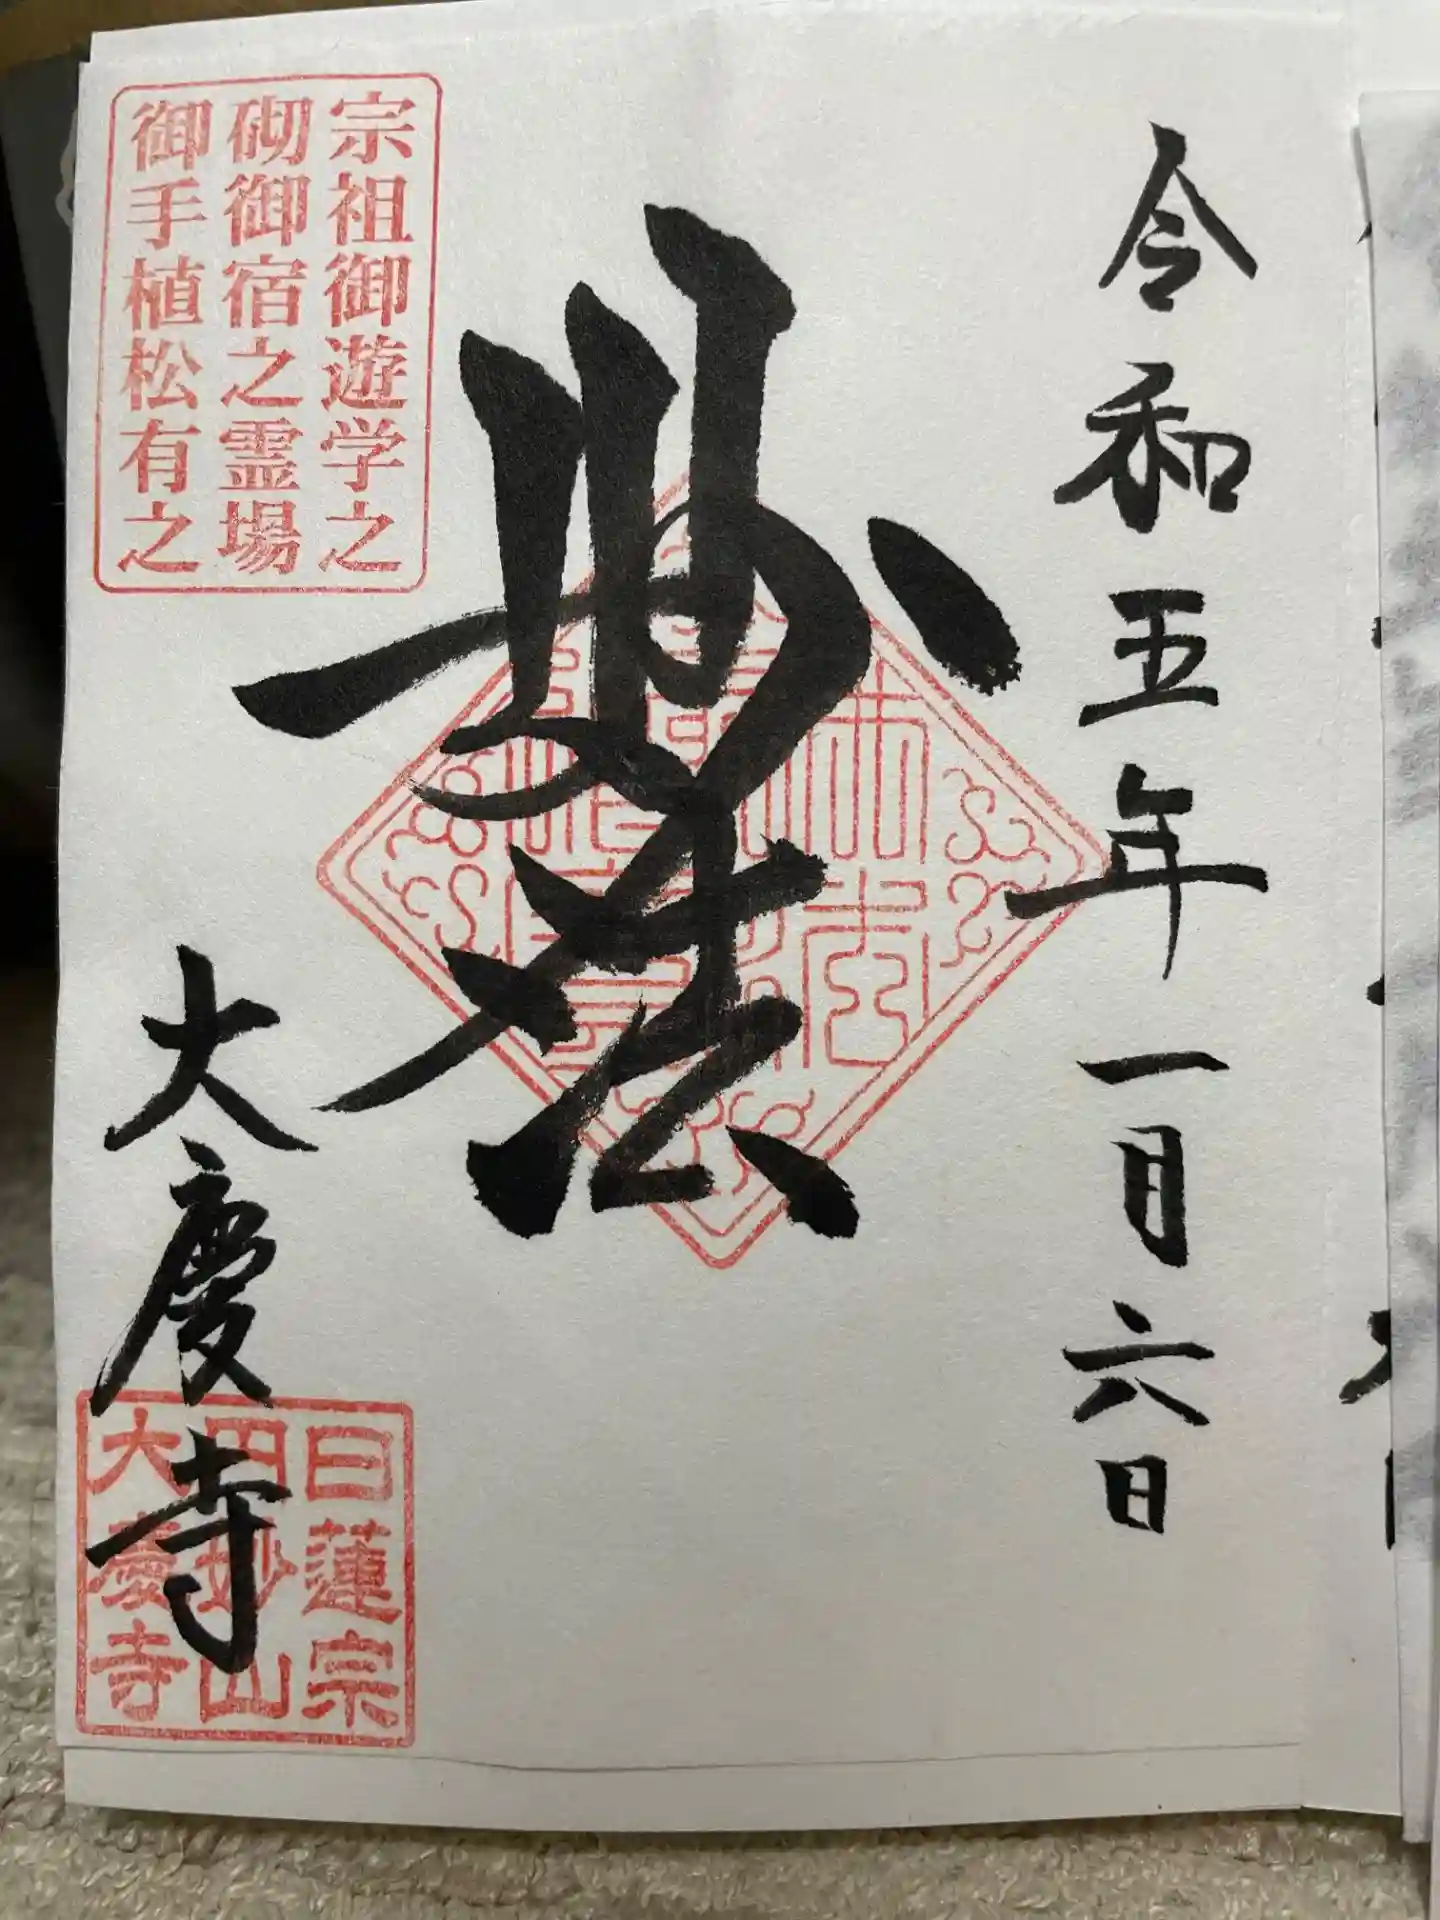 令和五年一月六日
妙法
宗祖御遊学之
砌御宿之霊場
御手植松有之
大慶寺
日蓮宗
四妙山
大慶寺